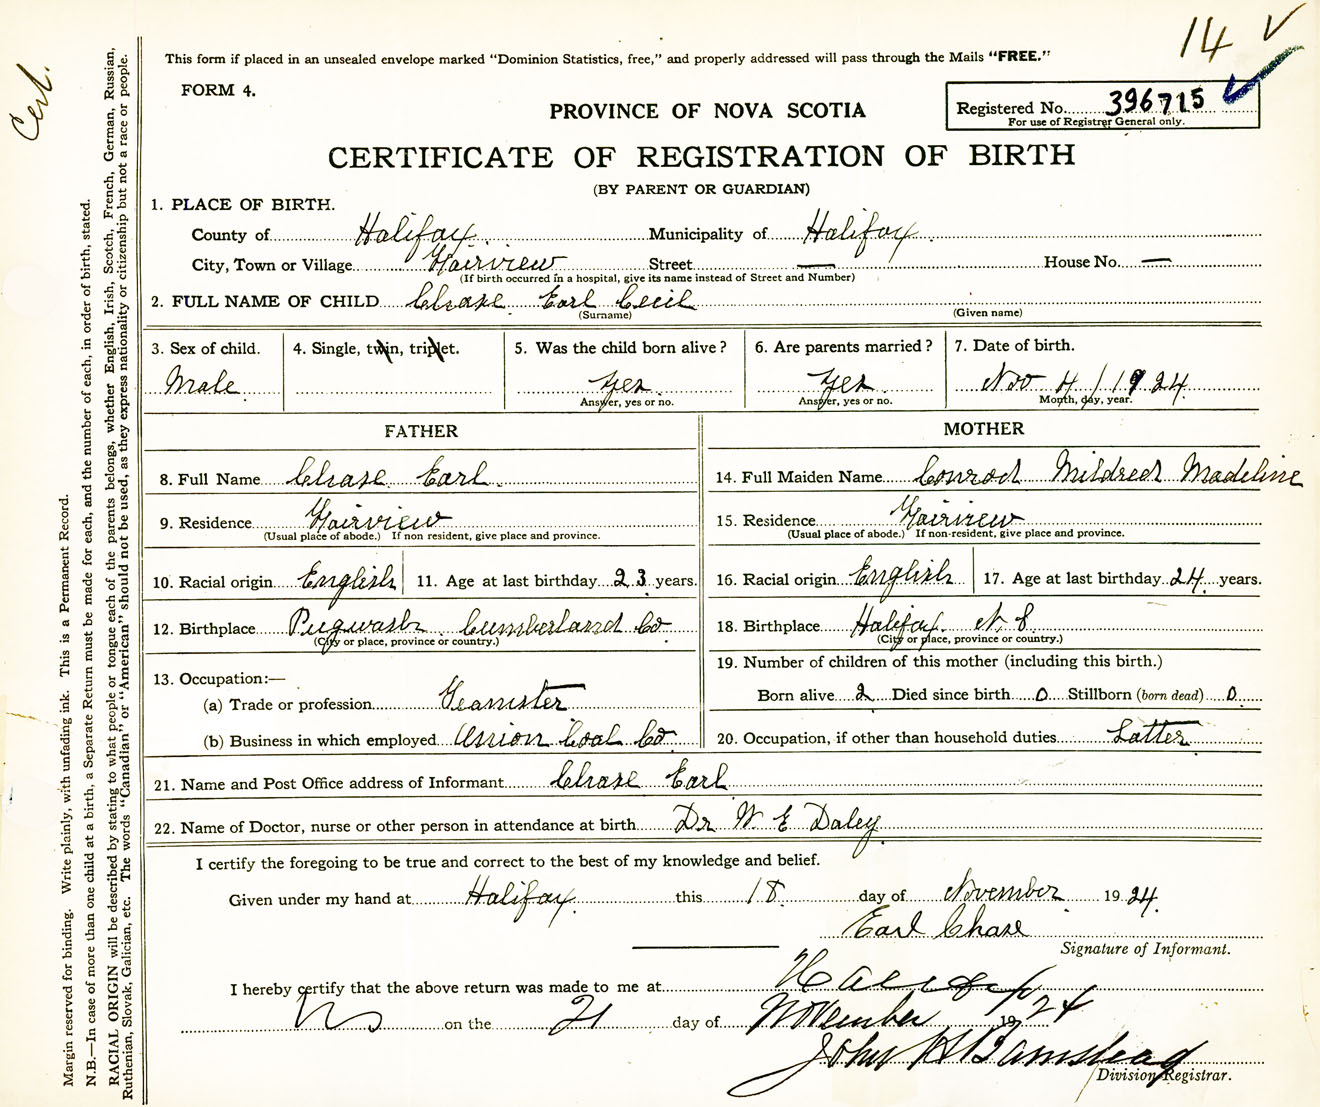 14 ✓
Cert.
This form if placed in an unsealed envelope marked "Dominion Statistics, free," and properly addressed will pass through the Mails "FREE."
FORM 4.
PROVINCE OF NOVA SCOTIA
Registered No. 396715
For use of Registrar General only.
CERTIFICATE OF REGISTRATION OF BIRTH
(BY PARENT OR GUARDIAN)
1. PLACE OF BIRTH.
County of Halifax Municipality of Halifax
City, Town or Village Fairview Street — House No. —
(If birth occurred in a hospital, give its name instead of Street and Number)
2. FULL NAME OF CHILD Chase Earl Cecil
(Surname) (Given name)
3. Sex of child. 4. Single, twin, triplet. 5. Was the child born alive? 6. Are parents married? 7. Date of birth.
Male Yes Yes Nov 4 / 1924
Answer, yes or no. Answer, yes or no. Month, day, year.
FATHER
8. Full Name Chase Earl
9. Residence Fairview
(Usual place of abode.) If non resident, give place and province.
10. Racial origin English 11. Age at last birthday 23 years.
12. Birthplace Pugwash Cumberland Co
(City or place, province or country.)
13. Occupation:—
(a) Trade or profession Teamster
(b) Business in which employed Union Coal Co
MOTHER
14. Full Maiden Name Conrod Mildred Madeline
15. Residence Fairview
(Usual place of abode.) If non-resident, give place and province.
16. Racial origin English 17. Age at last birthday 24 years.
18. Birthplace Halifax N. S.
(City or place, province or country.)
19. Number of children of this mother (including this birth.)
Born alive 2 Died since birth 0 Stillborn (born dead) 0
20. Occupation, if other than household duties Latter
21. Name and Post Office address of Informant Chase Earl
22. Name of Doctor, nurse or other person in attendance at birth Dr W E Daley
I certify the foregoing to be true and correct to the best of my knowledge and belief.
Given under my hand at Halifax this 18 day of November 1924.
Earl Chase
Signature of Informant.
I hereby certify that the above return was made to me at Halifax
NS on the 21 day of November 1924
John H Barnstead
Division Registrar.
Margin reserved for binding. Write plainly, with unfading ink. This is a Permanent Record.
N.B.—In case of more than one child at a birth, a Separate Return must be made for each, and the number of each, in order of birth, stated.
RACIAL ORIGIN will be described by stating to what people or tongue each of the parents belongs, whether English, Irish, Scotch, French, German, Russian,
Ruthenian, Slovak, Galician, etc. The words "Canadian" or "American" should not be used, as they express nationality or citizenship but not a race or people.